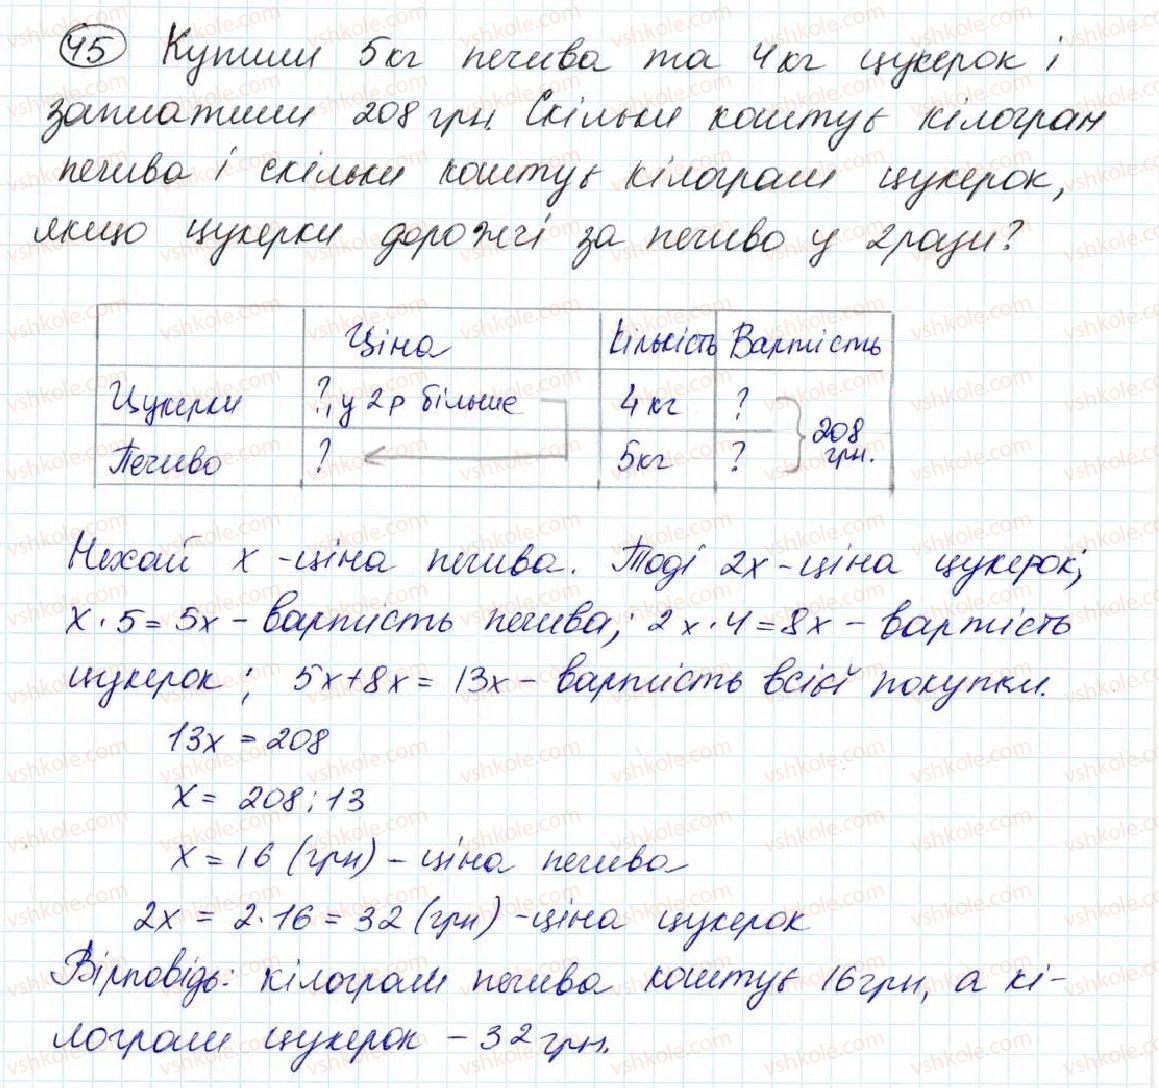 45 Купили 5кг печива та 4кг цукерок і
заплатили 208 грн. Скільки коштує кілограм
печива і скільки коштує кілограм цукерок,
якщо цукерки дорожчі за печиво у 2 рази?
Ціна Кількість Вартість
Цукерки ?, у 2р більше 4 кг ?
208 грн.
Печиво ? 5кг ?
Нехай х - ціна печива. Тоді 2х - ціна цукерок;
х · 5 = 5х - вартість печива; 2х · 4 = 8х - вартість
цукерок; 5х + 8х = 13х - вартість всієї покупки.
13х = 208
х = 208 : 13
х = 16 (грн) - ціна печива
2х = 2 · 16 = 32 (грн) - ціна цукерок
Відповідь: кілограм печива коштує 16 грн, а кі-
лограм цукерок - 32 грн.